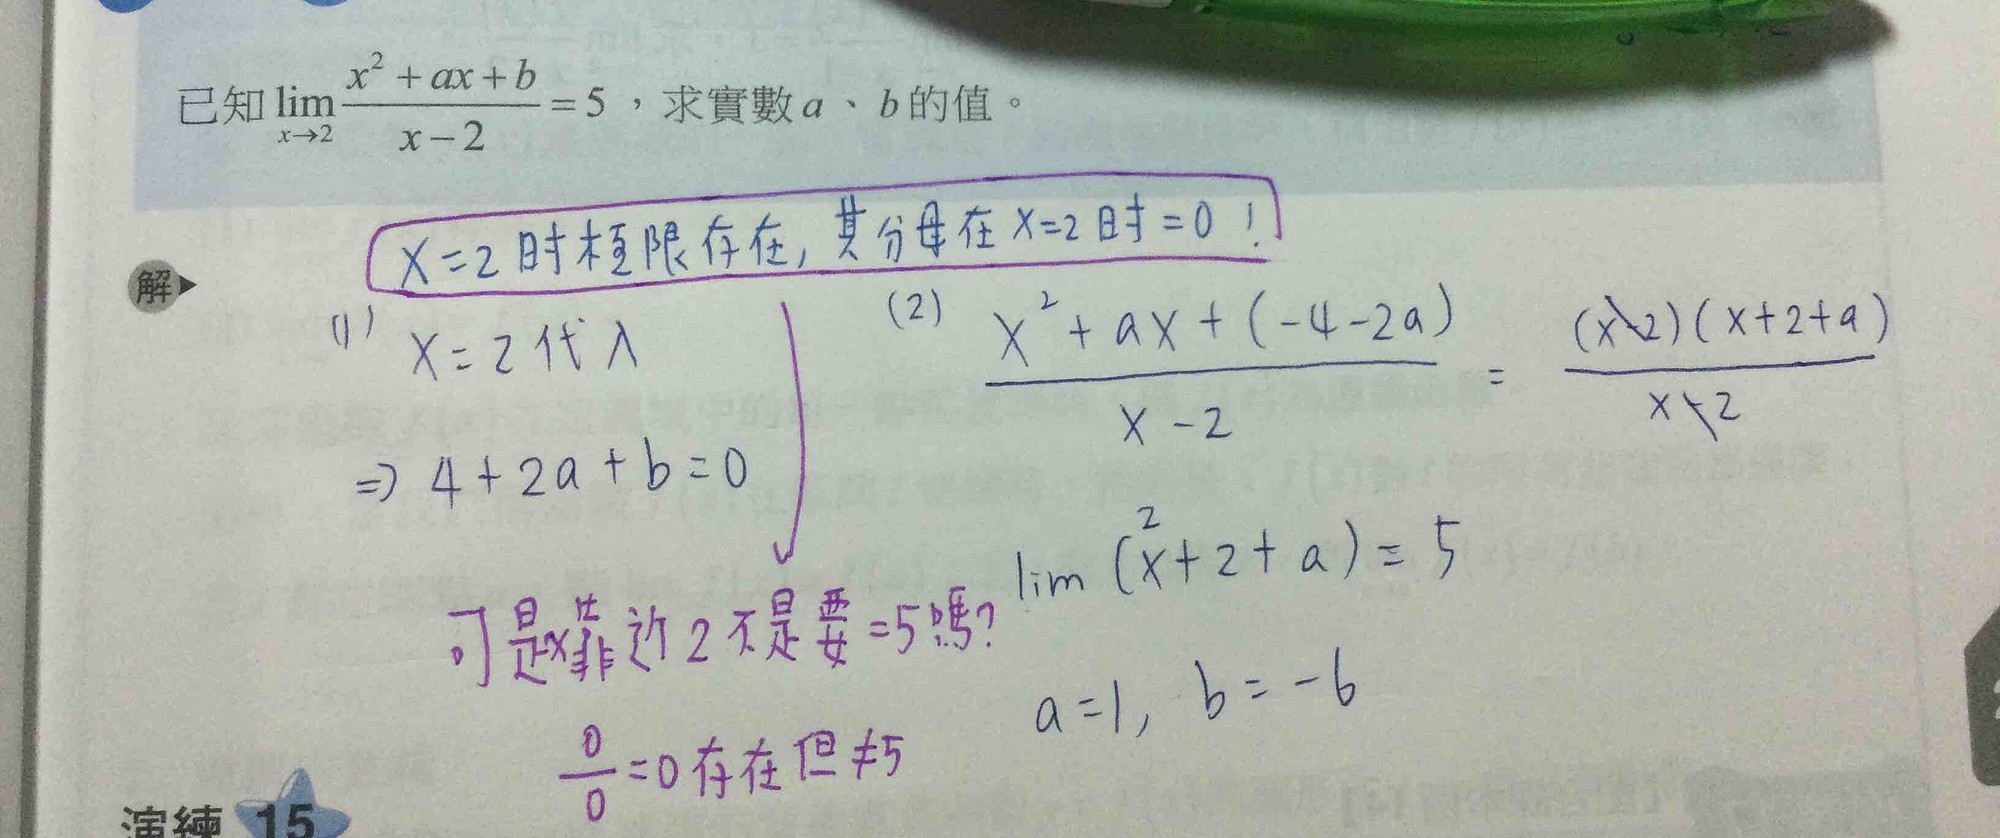 已知 lim x→2 (x² + ax + b)/(x − 2) = 5，求實數 a、b 的值。
x=2 时極限存在, 其分母在 x=2 时 = 0 !
解
(1) x=2 代入
⇒ 4 + 2a + b = 0
可是x靠近 2 不是要 =5 嗎?
0/0 = 0 存在但≠5
(2) (x² + ax + (-4-2a))/(x-2) = ((x-2)(x+2+a))/(x-2)
lim (x+2+a) = 5
2
a=1, b=-6
演練 15